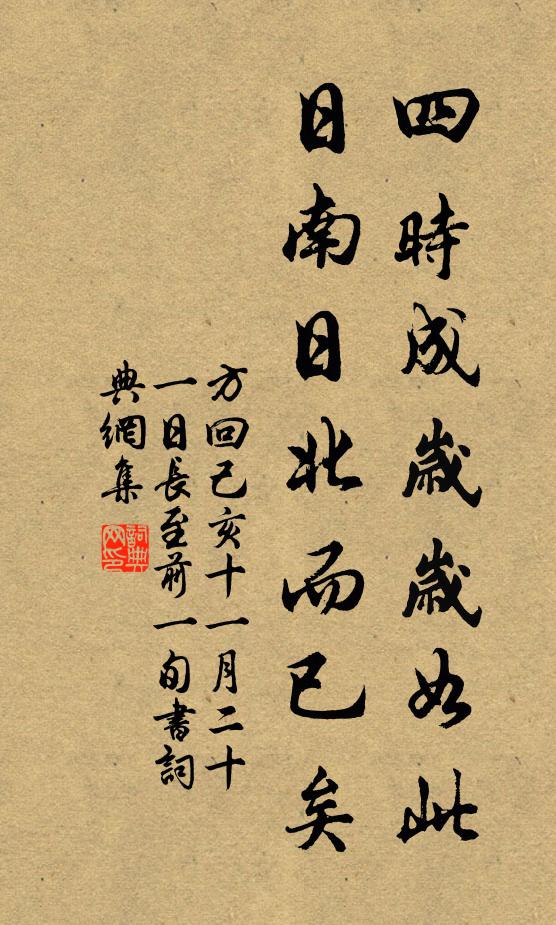 四時成歲歲如此
日南日北而已矣
方回己亥十一月二十
一日長至前一旬書詞
典網集
詞典网印